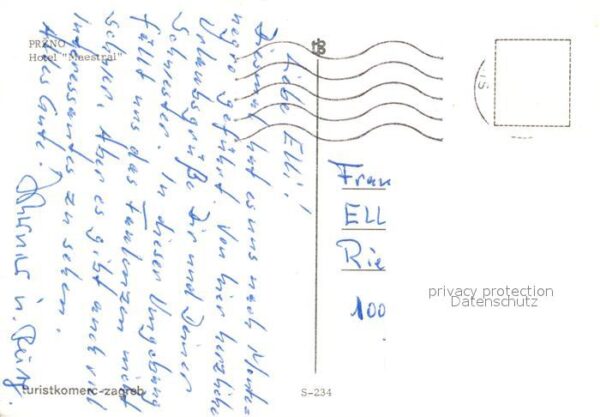 PRŽNO
Hotel "Maestral"
Liebe Elli!
Diesmal hat es uns nach Monte-
negro geführt. Von hier herzliche
Urlaubsgrüße Dir und Deiner
Schwester. In dieser Umgebung
fällt uns das Faulenzen nicht
schwer. Aber es gibt auch viel
Interessantes zu sehen.
Alles Gute!
u.
Frau
ELL
Rie
100
privacy protection
Datenschutz
turistkomerc-zagreb
S-234